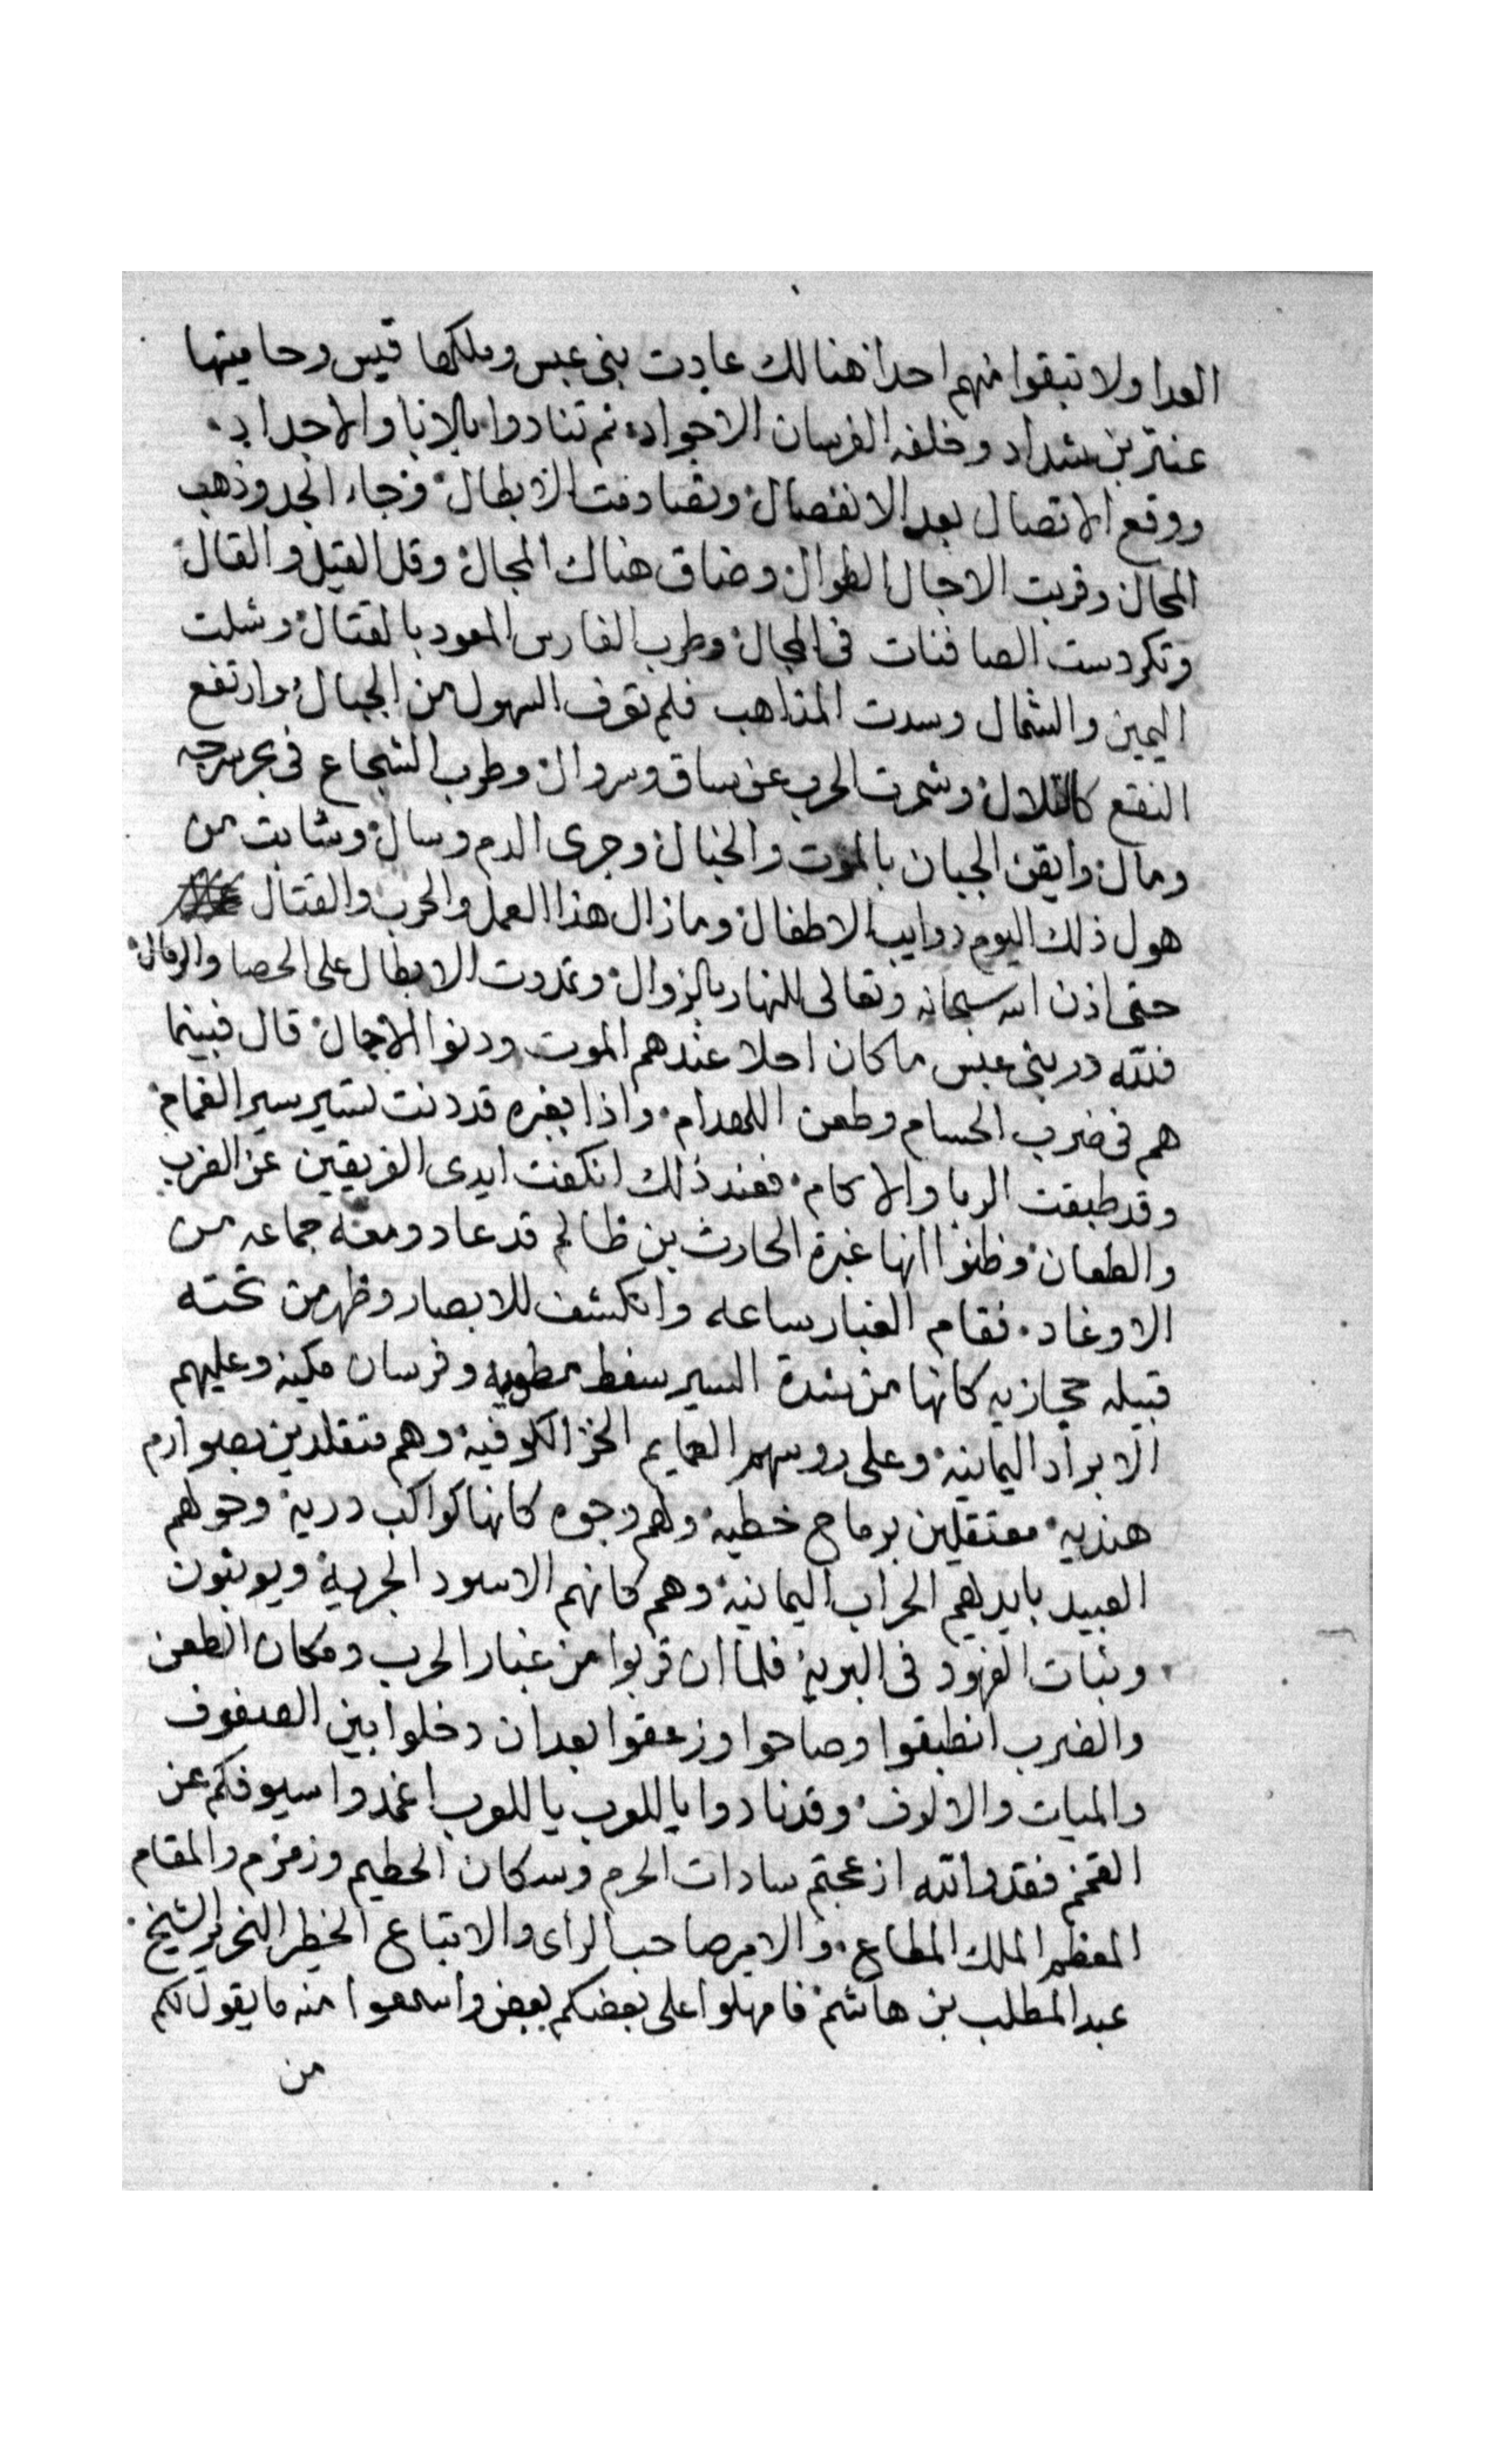 العدا ولا تبقوا منهم احدا هنالك عادت بنى عبس وملكها قيس وحاميتها
عنتر بن شداد وخلفه الفرسان الاجواد ثم تنادوا بالابا والاجداد
ووقع الاتصال بعد الانفصال وتصادمت الابطال وجاء الجد وذهب
المحال وقربت الاجال الطوال وضاق هناك المجال وقل القيل والقال
وتكردست الصافنات فى المجال وطرب الفارس المعود بالقتال وشلت
اليمين والشمال وسدت المذاهب فلم تعرف السهول من الجبال وارتفع
النقع كالتلال وشمرت الحرب عن ساق وسروال وطرب الشجاع فى بحر سرجه
ومال وايقن الجبان بالموت والخبال وجرى الدم وسال وشابت من
هول ذلك اليوم دوايب الاطفال وما زال هذا العمل والحرب والقتال
حتى اذن الله سبحانه وتعالى للنهار بالزوال وتمددت الابطال على الحصا والرمال
فلله در بنى عبس ما كان احلا عندهم الموت ودنوا الاجال قال فبينما
هم فى ضرب الحسام وطعن اللهدام واذا بغبره قد دنت تسير سير الغمام
وقد طبقت الربا والاكام فعند ذلك انكفت ايدى الفريقين عن الضرب
والطعان وظنوا انها غبرة الحارث بن ظالم قد عاد ومعه جماعه من
الاوغاد فقام الغبار ساعه وانكشف للابصار وظهر من تحته
قبيله حجازيه كانها من شدة السير سفط مطويه وفرسان مكيه وعليهم
الابراد اليمانية وعلى روسهم العمايم الخز الكوفية وهم متقلدين بصوارم
هنديه معتقلين برماح خطية ولهم وجوه كانها كواكب درية وحولهم
العبيد بايديهم الحراب اليمانية وهم كانهم الاسود الجرية ويوثبون
وثبات الفهود فى البرية فلما ان قربوا من غبار الحرب ومكان الطعن
والضرب انطبقوا وصاحوا وزعقوا بعد ان دخلوا بين الصفوف
والميات والالوف وقد نادوا يا للوب يا للوب اغمدوا سيوفكم عن
القمم فقد والله ازعجتم سادات الحرم وسكان الحطيم وزمزم والمقام
المعظم الملك المطاع والامير صاحب الراى والاتباع الخطر النحرير الشيخ
عبد المطلب بن هاشم فامهلوا على بعضكم بعض واسمعوا منه ما يقول لكم
من